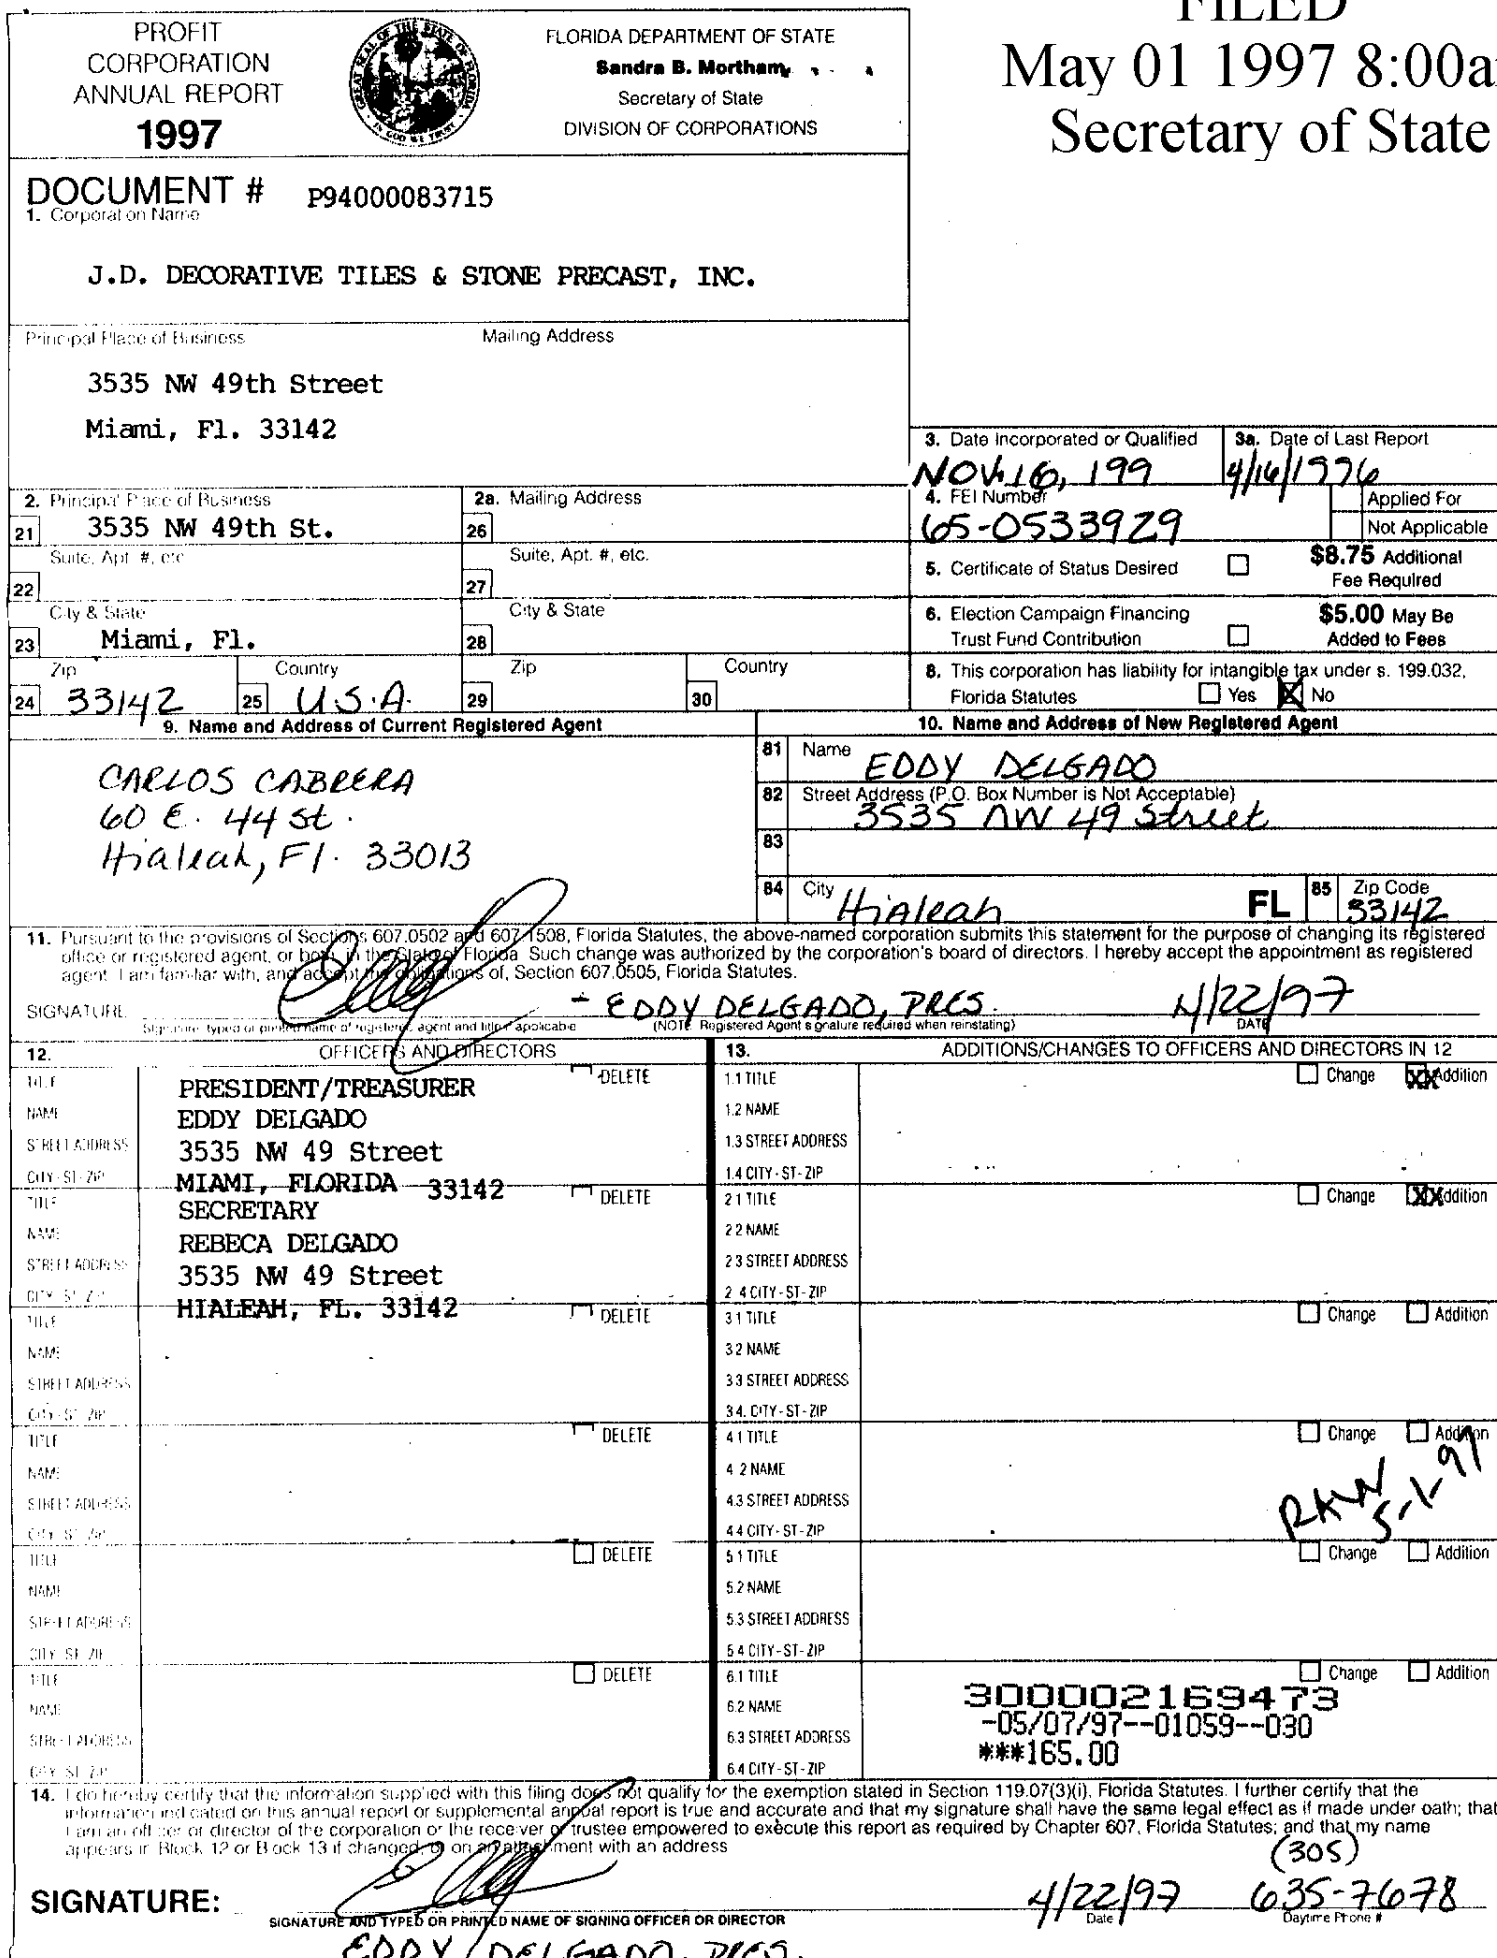 PROFIT
CORPORATION
ANNUAL REPORT
1997
FLORIDA DEPARTMENT OF STATE
Sandra B. Mortham
Secretary of State
DIVISION OF CORPORATIONS
FILED
May 01 1997 8:00a
Secretary of State
DOCUMENT # P94000083715
1. Corporation Name
J.D. DECORATIVE TILES & STONE PRECAST, INC.
Principal Place of Business Mailing Address
3535 NW 49th Street
Miami, Fl. 33142
3. Date Incorporated or Qualified
NOV. 16, 199
3a. Date of Last Report
4/16/1996
2. Principal Place of Business
21 3535 NW 49th St.
2a. Mailing Address
26
4. FEI Number
65-0533929
Applied For
Not Applicable
Suite, Apt. #, etc.
22
Suite, Apt. #, etc.
27
5. Certificate of Status Desired
$8.75 Additional
Fee Required
City & State
23 Miami, Fl.
City & State
28
6. Election Campaign Financing
Trust Fund Contribution
$5.00 May Be
Added to Fees
Zip
24 33142
Country
25 U.S.A.
Zip
29
Country
30
8. This corporation has liability for intangible tax under s. 199.032,
Florida Statutes Yes X No
9. Name and Address of Current Registered Agent
CARLOS CABRERA
60 E. 44 St.
Hialeah, Fl. 33013
10. Name and Address of New Registered Agent
81 Name EDDY DELGADO
82 Street Address (P.O. Box Number is Not Acceptable)
3535 NW 49 Street
83
84 City Hialeah FL 85 Zip Code
33142
11. Pursuant to the provisions of Sections 607.0502 and 607.1508, Florida Statutes, the above-named corporation submits this statement for the purpose of changing its registered
office or registered agent, or both, in the State of Florida. Such change was authorized by the corporation's board of directors. I hereby accept the appointment as registered
agent. I am familiar with, and accept the obligations of, Section 607.0505, Florida Statutes.
SIGNATURE - EDDY DELGADO, PRES. 4/22/97
Signature, typed or printed name of registered agent and title if applicable (NOTE: Registered Agent signature required when reinstating) DATE
12. OFFICERS AND DIRECTORS
13. ADDITIONS/CHANGES TO OFFICERS AND DIRECTORS IN 12
TITLE PRESIDENT/TREASURER DELETE
NAME EDDY DELGADO
STREET ADDRESS 3535 NW 49 Street
CITY-ST-ZIP MIAMI, FLORIDA 33142
1.1 TITLE Change XX Addition
1.2 NAME
1.3 STREET ADDRESS
1.4 CITY-ST-ZIP
TITLE SECRETARY DELETE
NAME REBECA DELGADO
STREET ADDRESS 3535 NW 49 Street
CITY-ST-ZIP HIALEAH, FL. 33142
2.1 TITLE Change XX Addition
2.2 NAME
2.3 STREET ADDRESS
2.4 CITY-ST-ZIP
TITLE DELETE
NAME
STREET ADDRESS
CITY-ST-ZIP
3.1 TITLE Change Addition
3.2 NAME
3.3 STREET ADDRESS
3.4. CITY-ST-ZIP
TITLE DELETE
NAME
STREET ADDRESS
CITY-ST-ZIP
4.1 TITLE Change Addition
4.2 NAME
4.3 STREET ADDRESS
4.4 CITY-ST-ZIP
5-1-97
TITLE DELETE
NAME
STREET ADDRESS
CITY-ST-ZIP
5.1 TITLE Change Addition
5.2 NAME
5.3 STREET ADDRESS
5.4 CITY-ST-ZIP
TITLE DELETE
NAME
STREET ADDRESS
CITY-ST-ZIP
6.1 TITLE Change Addition
6.2 NAME
6.3 STREET ADDRESS
6.4 CITY-ST-ZIP
300002169473
-05/07/97--01059--030
***165.00
14. I do hereby certify that the information supplied with this filing does not qualify for the exemption stated in Section 119.07(3)(i), Florida Statutes. I further certify that the
information indicated on this annual report or supplemental annual report is true and accurate and that my signature shall have the same legal effect as if made under oath; that
I am an officer or director of the corporation or the receiver or trustee empowered to execute this report as required by Chapter 607, Florida Statutes; and that my name
appears in Block 12 or Block 13 if changed, or on an attachment with an address
SIGNATURE: 4/22/97 (305) 635-7678
SIGNATURE AND TYPED OR PRINTED NAME OF SIGNING OFFICER OR DIRECTOR Date Daytime Phone #
EDDY DELGADO, PRES.